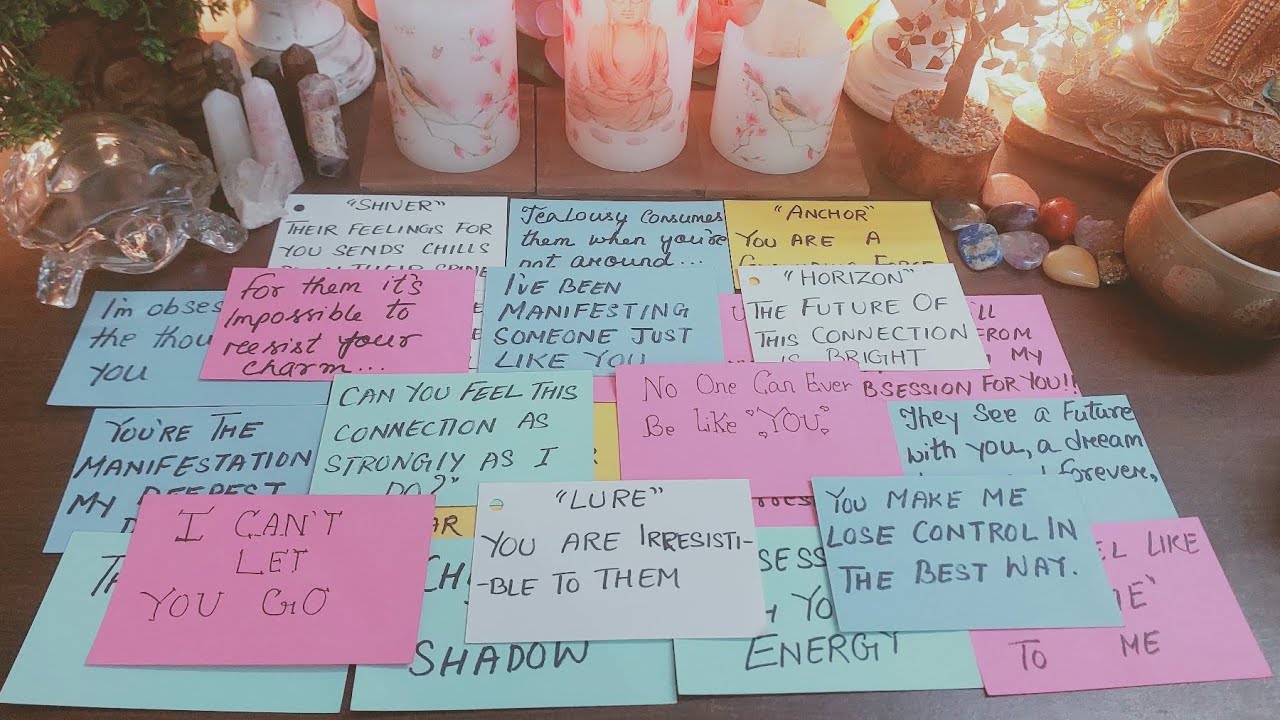 "SHIVER"
THEIR FEELINGS FOR
YOU SENDS CHILLS
DOWN THEIR SPINE
Jealousy consumes
them when you're
not around...
"ANCHOR"
YOU ARE A
GROUNDING FORCE
I'm obse
the thou
YOU
For them it's
Impossible to
reesist your
charm...
I'VE BEEN
MANIFESTING
SOMEONE JUST
LIKE YOU
"HORIZON"
THE FUTURE OF
THIS CONNECTION
IS BRIGHT
LL
FROM
MY
BSESSION FOR YOU!!
YOU'RE THE
MANIFESTATION
MY DEEPEST
CAN YOU FEEL THIS
CONNECTION AS
STRONGLY AS I
DO?"
No One Can Ever
Be Like "YOU"
They See a Future
with you, a dream
forever,
I CAN'T
LET
YOU GO
AR
CH
SHADOW
"LURE"
YOU ARE IRRESISTI-
-BLE TO THEM
SESS
YO
ENERGY
YOU MAKE ME
LOSE CONTROL IN
THE BEST WAY.
EL LIKE
ME'
TO ME